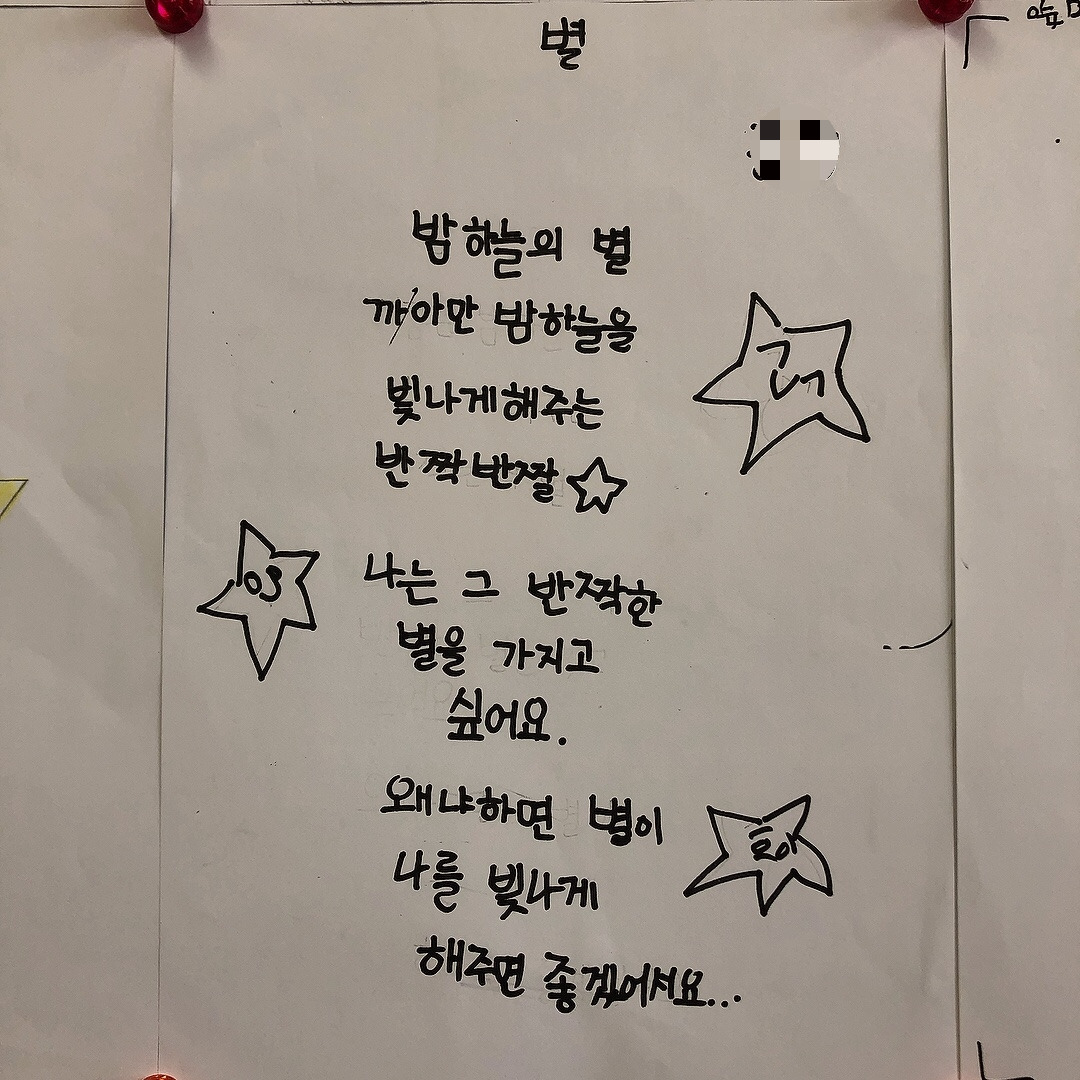 별
밤하늘의 별
까아만 밤하늘을
빛나게해주는
반짝반짝☆
나는 그 반짝한
별을 가지고
싶어요.
왜냐하면 별이
나를 빛나게
해주면 좋겠어서요...